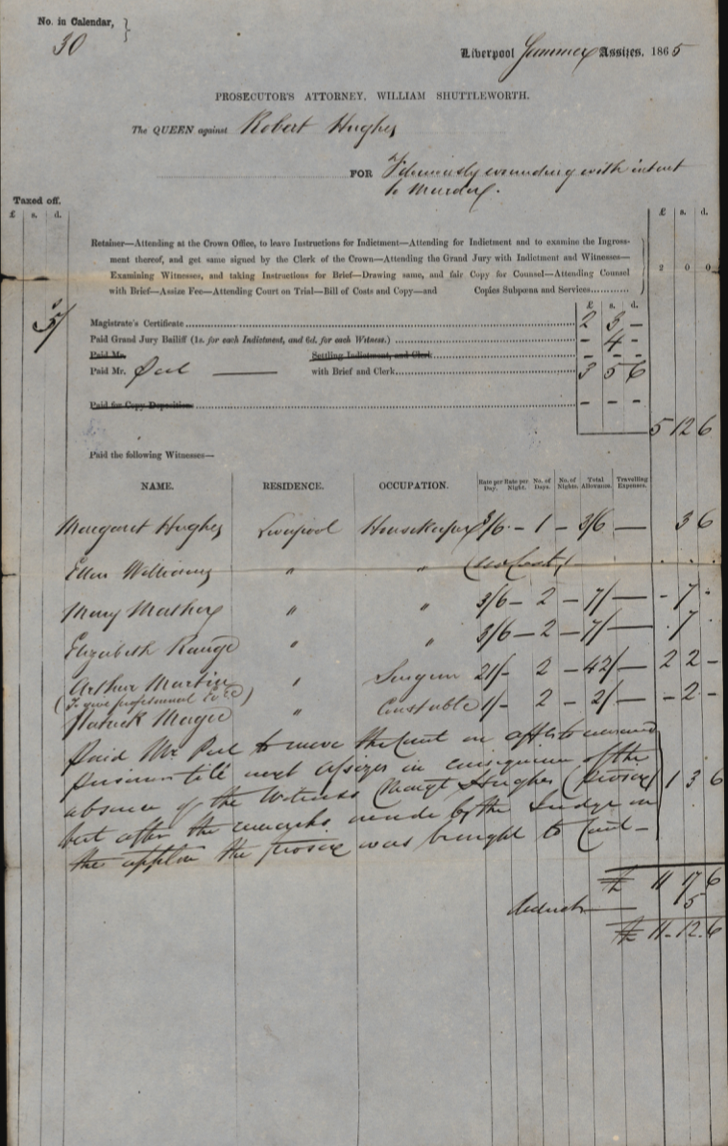 No. in Calendar, }
30
Liverpool Summer Assizes, 1865
PROSECUTOR'S ATTORNEY, WILLIAM SHUTTLEWORTH.
The QUEEN against Robert Hughes
FOR Feloniously wounding with intent
to Murder.
Taxed off.
£ s. d. £ s. d.
Retainer—Attending at the Crown Office, to leave Instructions for Indictment—Attending for Indictment and to examine the Ingross-
ment thereof, and get same signed by the Clerk of the Crown—Attending the Grand Jury with Indictment and Witnesses—
Examining Witnesses, and taking Instructions for Brief—Drawing same, and fair Copy for Counsel—Attending Counsel 2 0 0
with Brief—Assize Fee—Attending Court on Trial—Bill of Costs and Copy—and Copies Subpœna and Services
£ s. d.
5/ Magistrate's Certificate 2 3 -
Paid Grand Jury Bailiff (1s. for each Indictment, and 6d. for each Witness.) - 4 -
Paid Mr. Settling Indictment, and Clerk - - -
Paid Mr. Peel with Brief and Clerk 3 5 6
Paid for Copy Deposition - - -
5 12 6
Paid the following Witnesses—
NAME. RESIDENCE. OCCUPATION. Rate per Day. Rate per Night. No. of Days. No. of Nights. Total Allowance. Travelling Expenses.
Margaret Hughes Liverpool Housekeeper 3/6 - 1 - 3/6 — 3 6
Ellen Williams " " (no Cost)
Mary Mather " " 3/6 - 2 - 7/ — - 7 -
Elizabeth " " 3/6 - 2 - 7/ — 7 -
Arthur Martin " Surgeon 21/- 2 - 42/ — 2 2 -
(To give professional Evce)
Patrick Magee " Constable 1/- 2 - 2/ — - 2 -
Paid Mr Peel to move the Court on affts to remand
prisoner till next assizes in consequence of the
absence of the Witness Margt Hughes (Prosex) 1 3 6
but after the remarks made by the Judge on
the applon the prosex was brought to Court -
£ 11 17 6
deduct — 5
£ 11 - 12 . 6